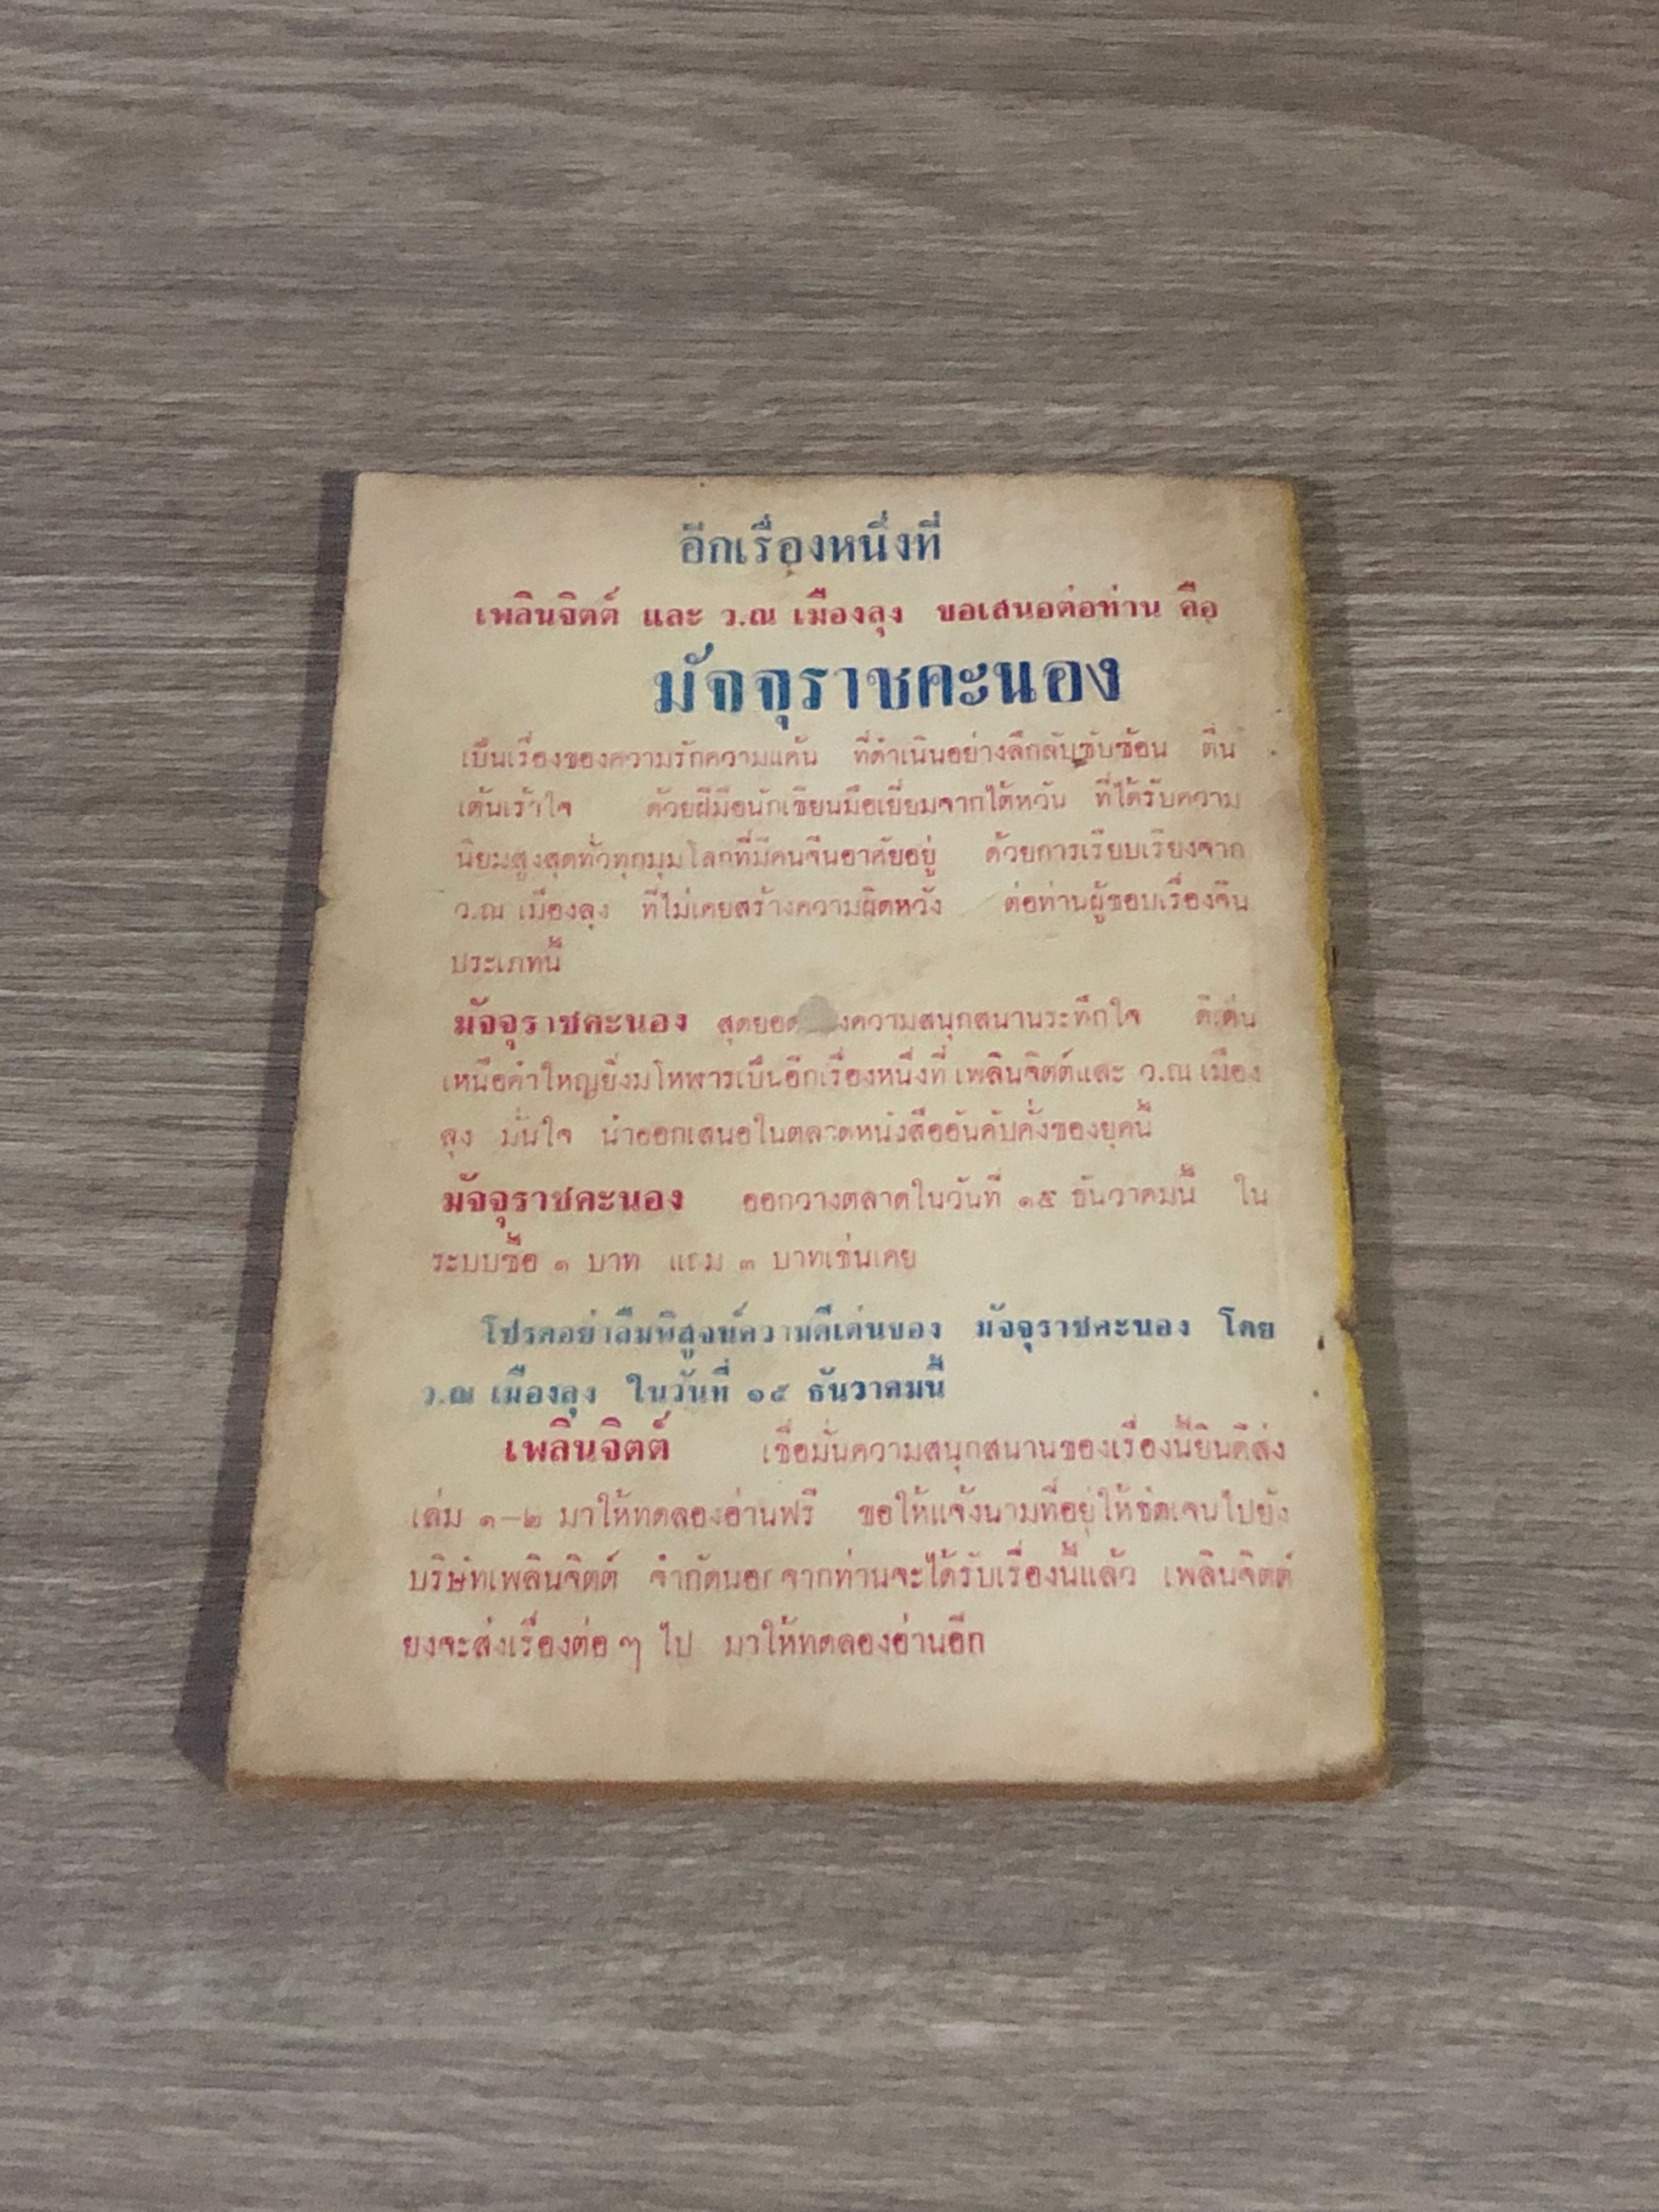 อีกเรื่องหนึ่งที่
เพลินจิตต์ และ ว.ณ เมืองลุง ขอเสนอต่อท่าน คือ
มัจจุราชคะนอง
เป็นเรื่องของความรักความแค้น ที่ดำเนินอย่างลึกลับซับซ้อน ตื่น
เต้นเร้าใจ ด้วยฝีมือนักเขียนมือเยี่ยมจากไต้หวัน ที่ได้รับความ
นิยมสูงสุดทั่วทุกมุมโลกที่มีคนจีนอาศัยอยู่ ด้วยการเรียบเรียงจาก
ว.ณ เมืองลุง ที่ไม่เคยสร้างความผิดหวัง ต่อท่านผู้ชอบเรื่องจีน
ประเภทนี้
มัจจุราชคะนอง สุดยอดของความสนุกสนานระทึกใจ ดีเด่น
เหนือคำใหญ่ยิ่งมโหฬารเป็นอีกเรื่องหนึ่งที่ เพลินจิตต์และ ว.ณ เมือง
ลุง มั่นใจ นำออกเสนอในตลาดหนังสืออันคับคั่งของยุคนี้
มัจจุราชคะนอง ออกวางตลาดในวันที่ ๑๕ ธันวาคมนี้ ใน
ระบบซื้อ ๑ บาท แถม ๓ บาทเช่นเคย
โปรดอย่าลืมพิสูจน์ความดีเด่นของ มัจจุราชคะนอง โดย
ว.ณ เมืองลุง ในวันที่ ๑๕ ธันวาคมนี้
เพลินจิตต์ เชื่อมั่นความสนุกสนานของเรื่องนี้ยินดีส่ง
เล่ม ๑-๒ มาให้ทดลองอ่านฟรี ขอให้แจ้งนามที่อยู่ให้ชัดเจนไปยัง
บริษัทเพลินจิตต์ จำกัดนอกจากท่านจะได้รับเรื่องนี้แล้ว เพลินจิตต์
ยังจะส่งเรื่องต่อ ๆ ไป มาให้ทดลองอ่านอีก